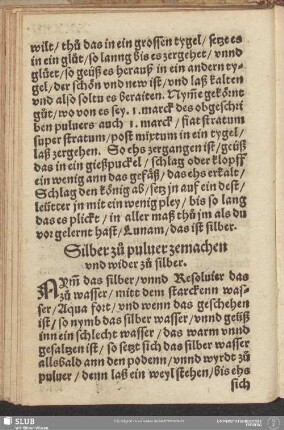 wilt/ thů das in ein grossen tygel/ setze es
in ein glůt/ so lanng bis es zergehet/ vnnd
glüet/ so geüß es herauß in ein andern ty-
gel/ der schön vnd new ist/ vnd laß kalten
vnd also soltu es beraiten. Nym̃e gekönt
gůt/ wo von es sey. 1. marck des obgeschri
ben puluers auch 1. marck/ fiat stratum
super stratum/ post mixtum in ein tygel/
laß zergehen. So ehs zergangen ist/ geüß
das in ein gießpuckel/ schlag oder klopff
ein wenig ann das gefäß/ das ehs erkalt/
Schlag den könig ab/ setz jn auf ein dest/
leütter jn mit ein wenig pley/ bis so lang
das es plickt/ in aller maß thů jm als du
vor gelernt hast/ Lunam/ das ist silber.
Silber zů puluer zemachen
vnd wider zů silber.
NYm̃ das silber/ vnnd Resoluier das
zů wasser/ mitt dem starckenn was-
ser/ Aqua fort/ vnd wenn das geschehen
ist/ so nymb das silber wasser/ vnnd geüß
inn ein schlecht wasser/ das warm vnnd
gesaltzen ist/ so setzt sich das silber wasser
allsbald ann den podenn/ vnnd wyrdt zů
puluer/ denn laß ein weyl stehen/ bis ehs
sich
SLUB